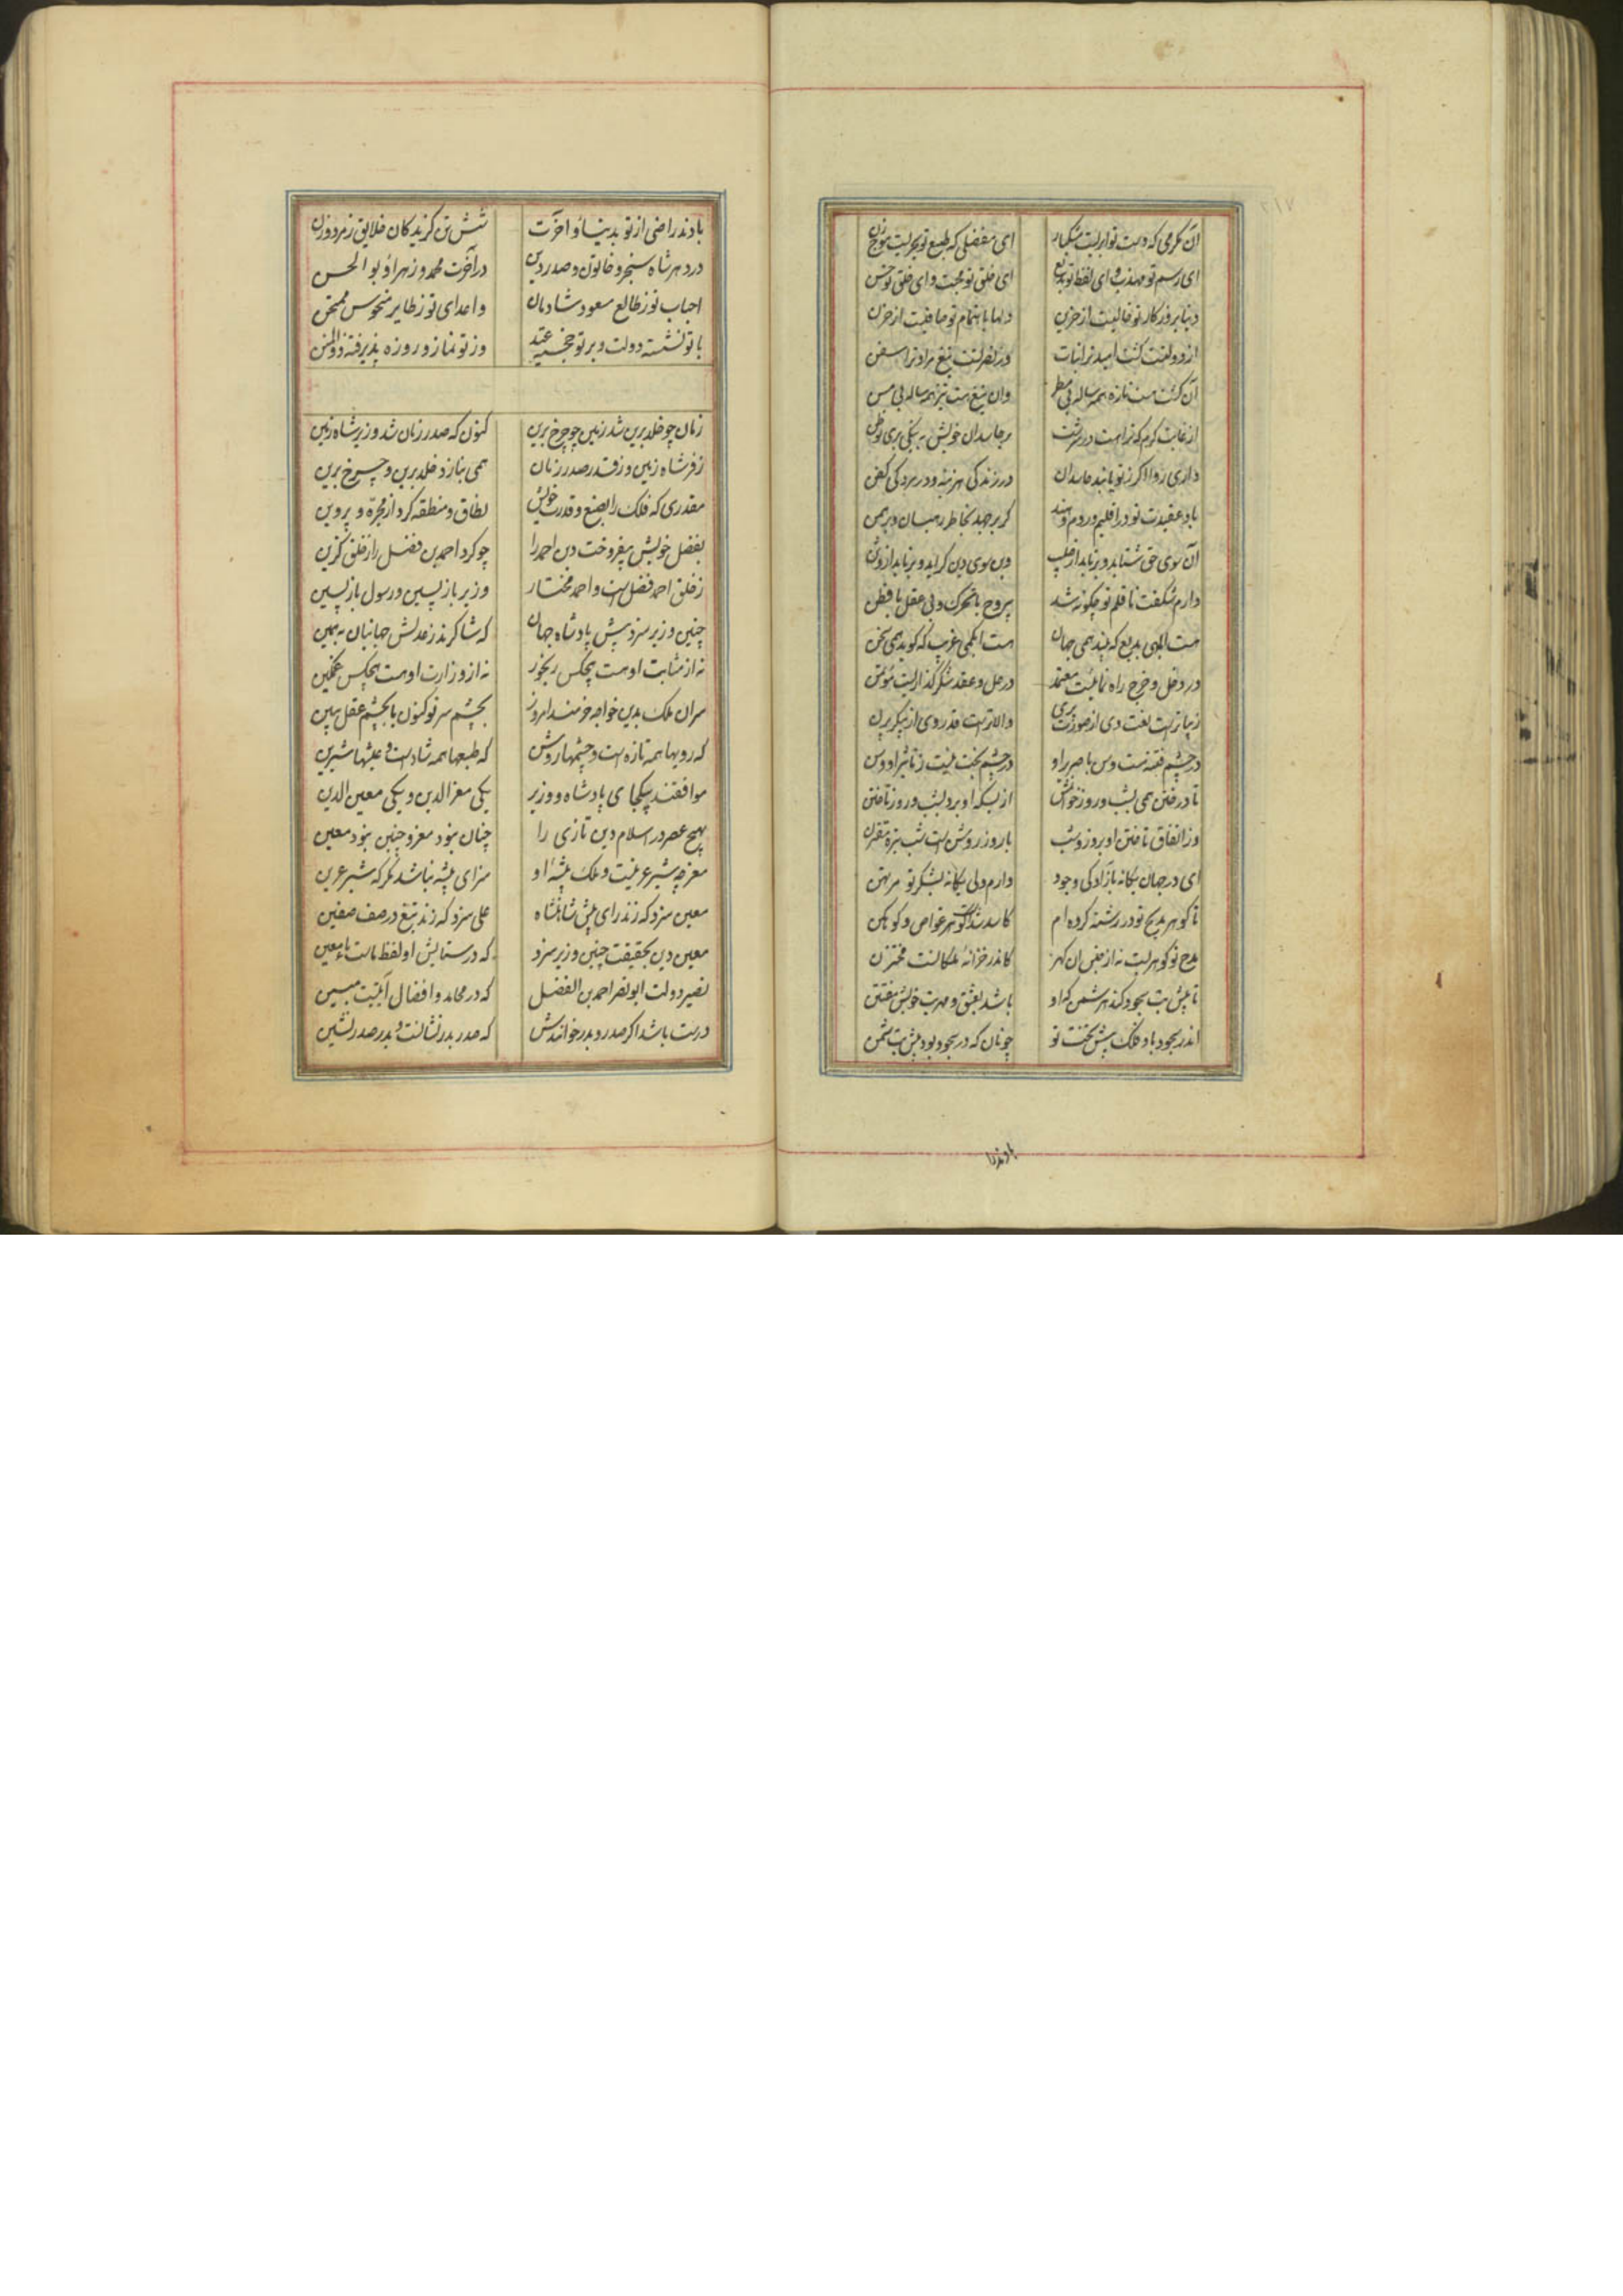 آن مکرمی که دست تو ابریست مشکبار ای مفضلی که طبع تو بحریست موج زن
ای رسم تو مهذب و ای لفظ تو بدیع ای خلق تو محبت و ای خلق تو حسن
دنیا بروزکار تو خالیست از حزین دلها باهتمام تو صافیست از حزن
از دولتت کشت امید ترا نبات وز نصرتت تیغ مراد ترا سفن
آن کشت هست تازه همه ساله بی مطر وان تیغ هست تیز همه ساله بی مسن
از غایت کرم که تراست در سرشت بر حاسدان خویش به نیکی بری تو ظن
داری روا اکر ز تو یابند حاسدان در زندکی هزینه و در مردکی کفن
باد عقیدت تو در اقلیم روم و هند کر بر جهد بخاطر رهبان و برهمن
آن سوی حق شتابد و برتابد از صلیب وین سوی دین کراید و برتابد از وثن
دارم شکفت تا قلم تو چکونه شد بی روح با تحرک و بی عقل با فطن
هست ابلهی بدیع که بیند همی جهان هست ابکمی غریب که کوید همی سخن
در دخل و خرج راه نمائیست معتمد در حل و عقد شکر کذاریست مؤتمن
زیباترست لغت وی از صورت پری والاترست قدر وی از پیکر پرن
در چشم فتنه هست وسن با صریر او در چشم بخت نیست ز تاثیر او وسن
تا در فتن همی بشب و روز خوانمش از بسکه او برد بشب و روز تاختن
وز اتفاق تاختن او بروز و شب با روز روشن است شب تیره مقترن
ای در جهان یکانه بآزادکی وجود دارم دلی یکانه بشکر تو مرتهن
تا کوهر مدیح تو در رشته کرده ام کاسد شداست کوهر غواص و کوه کن
مدح تو کوهریست نه از جنس آن کهر کاندر خزانهٔ ملکانست مختزن
تا پیش بت سجود کند هر شمن که او باشد بعشق و مهر بت خویش مفتتن
اندر سجود باد فلک پیش تخت تو چونان که در سجود بود پیش بت شمن
بادند
بادند راضی از تو بدنیا و آخرت شش تن کزیدکان خلایق ز مرد و زن
در دهر شاه سنجر و خاتون و صدر دین در آخرت محمد و زهرا و بو الحسن
احباب تو ز طالع مسعود شادمان و اعدای تو ز طایر منحوس ممتحن
با تو نشسته دولت و بر تو خجسته عید وز تو نماز و روزه پذیرفته ذوالمنن
زمان چو خلد برین شد زمین چو چرخ برین کنون که صدر زمان شد وزیر شاه زمین
ز فر شاه زمین و ز قدر صدر زمان همی بنازد خلد برین و چرخ برین
مقدری که فلک را بصنع و قدرت خویش نطاق و منطقه کرد از مجره و پروین
بفضل خویش بیفروخت دین احمد را چو کرد احمد بن فضل را ز خلق کزین
ز خلق احمد فضل است و احمد مختار وزیر بازپسین و رسول بازپسین
چنین وزیر سزد پیش پادشاه جهان که شاکرند ز عدلش جهانیان یهمین
نه از مثابت او هست هیچکس رنجور نه از وزارت او هست هیچکس غمکین
سران ملک بدین خواجه خرمند امروز بچشم سر تو کنون یا بچشم عقل ببین
که رویها همه تازه است و چشمها روشن که طبعها همه شاد است و عیشها شیرین
موافقند بیکجای پادشاه و وزیر یکی معز الدین و یکی معین الدین
بهیچ عصر در اسلام دین تازی را چنان نبود معز و چنین نبود معین
معز چو شیر عرینست و ملک بیشهٔ او سزای بیشه نباشد مکر که شیر عرین
معین سزد که زند رای پیش شاهنشاه علی سزد که زند تیغ در صف صفین
معین دین بحقیقت چنین وزیر سزد که در ستایش او لفظ ماست ماء معین
نصیر دولت ابونصر احمد بن الفضل که در محامد و افضال آیتیست مبین
درست باشد اکر صدر و بدر خوانندش که صدر بدر نشانست و بدر صدر نشین